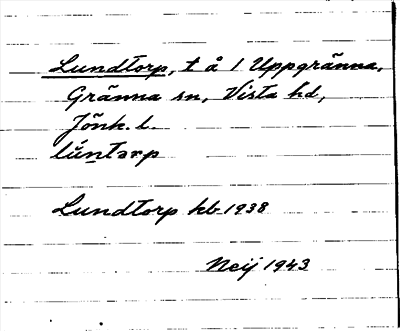 Lundtorp, t å 1 Uppgränna,
Gränna sn, Vista hd,
Jönk. l.
lùntǝrp
Lundtorp kb 1938
Neij 1943